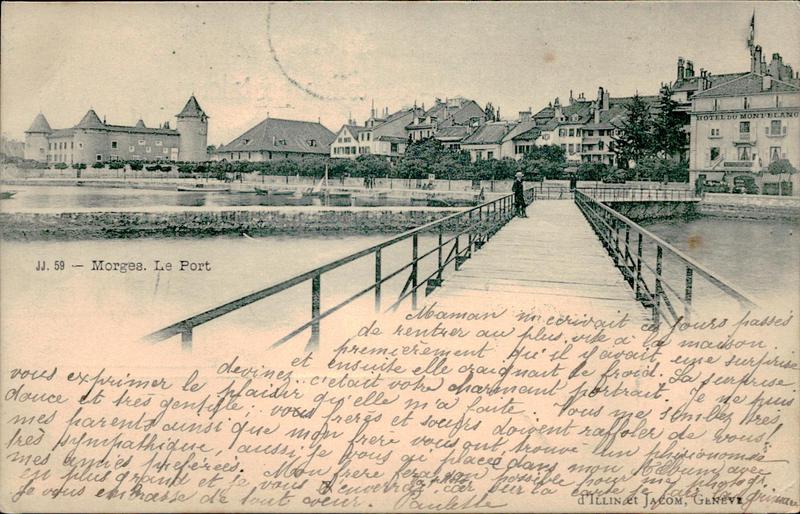 HOTEL DU MONT BLANC
JJ. 59 — Morges. Le Port
Maman m'écrivait ces jours passés
de rentrer au plus vite à la maison
premièrement qu'il y avait une surprise
et ensuite elle craignait le froid. La surprise
devinez c'était votre charmant portrait. Je ne puis
vous exprimer le plaisir qu'elle m'a faite. Vous me semblez très
douce et très gentille, vous frères et sœurs doivent raffoler de vous,
mes parents ainsi que mon frère vous ont trouvé un physionomie
très sympathique, aussi je vous ai placé dans mon album avec
mes amies préférées. Mon frère fera son possible pour me photogr.
en plus grand et je vous l'enverrai, car sur la carte je fais la grimace
Je vous embrasse de tout cœur. Paulette
d'Illin et Jacom, Genève